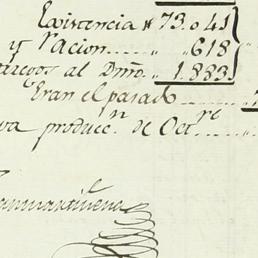 Existencia # 73.041
y racion...... " .618
al Dmō. 1.883.
Eran el pasado
producc.n de Oct.re